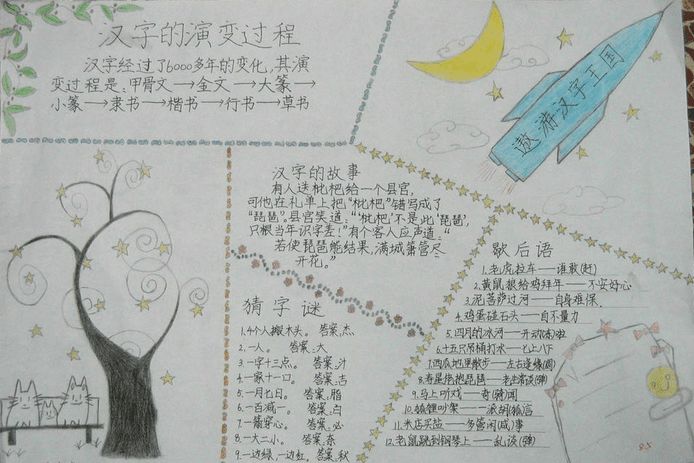 汉字的演变过程
汉字经过了6000多年的变化,其演
变过程是:甲骨文→金文→大篆→
小篆→隶书→楷书→行书→草书
遨游汉字王国
汉字的故事
有人送枇杷给一个县官,
可他在礼单上把“枇杷”错写成了
“琵琶”。县官笑道:“‘枇杷’不是此‘琵琶’,
只恨当年识字差!”有个客人应声道:“
若使琵琶能结果,满城箫管尽
开花。”
猜字谜
1.4个人搬木头。 答案:杰
2.一人。 答案:大
3.一字十三点。 答案:汁
4.一家十一口。 答案:吉
5.一月七日。 答案:脂
6.一百减一。 答案:白
7.一箭穿心。 答案:必
8.一大二小。 答案:奈
9.一边绿,一边红。 答案:秋
歇后语
1.老虎拉车——谁敢(赶)
2.黄鼠狼给鸡拜年——不安好心
3.泥菩萨过河——自身难保
4.鸡蛋碰石头——自不量力
5.四月的冰河——开动(冻)啦
6.十五只吊桶打水——七上八下
7.西瓜地里散步——左右逢缘(圆)
8.寿星抱琵琶——老生常谈(弹)
9.马上听戏——奇(骑)闻
10.狐狸吵架——一派胡狐言
11.米店买盐——多管闲(咸)事
12.老鼠跳到钢琴上——乱谈(弹)